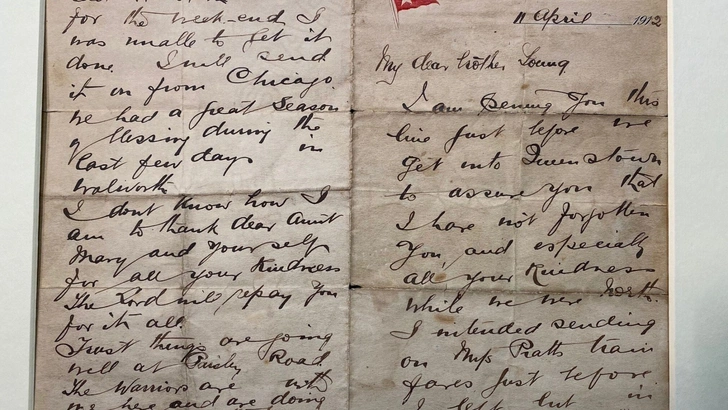 11 April 1912
My dear brother Young
I am penning you this
line just before we
get into Queenstown
to assure you that
I have not forgotten
you and especially
all your kindness
while we were North.
I intended sending
on Mrs Pratts train
fares just before
I left but in
for the week-end I
was unable to get it
done. I will send
it on from Chicago.
we had a great season
of blessing during the
last few days in
Walworth
I dont know how I
am to thank dear Aunt
Mary and yourself
for all your kindness
The Lord will repay you
for it all.
Trust things are going
well at Paisley Road.
The Warriors are with
me here and are doing